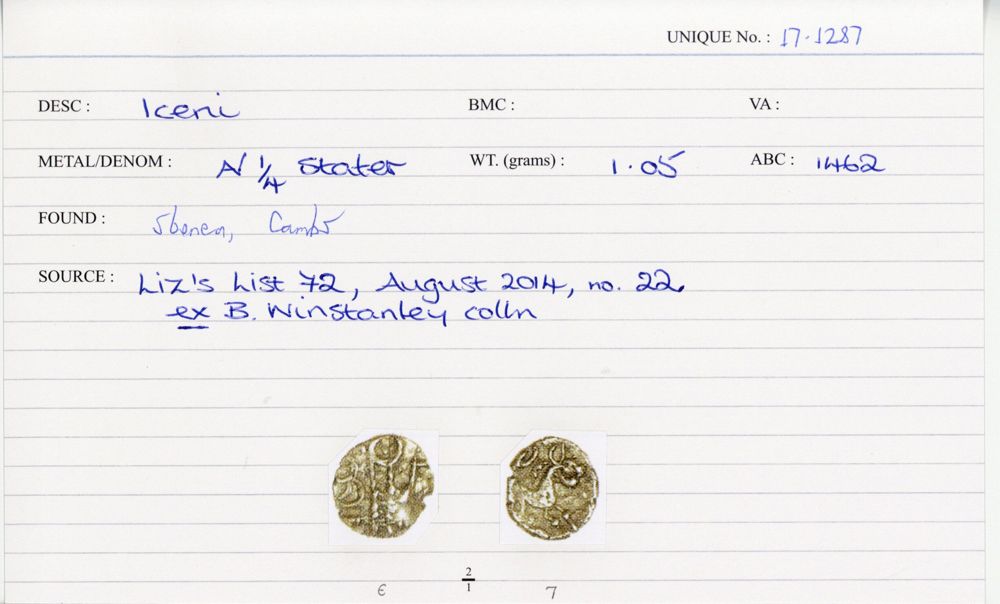 UNIQUE No. : 17.1287
DESC : Iceni BMC : VA :
METAL/DENOM : A/ 1/4 Stater WT. (grams) : 1.05 ABC : 1462
FOUND : Cambs
SOURCE : Liz's List 72, August 2014, no. 22.
ex B. Winstanley colln
2
1
€ 7